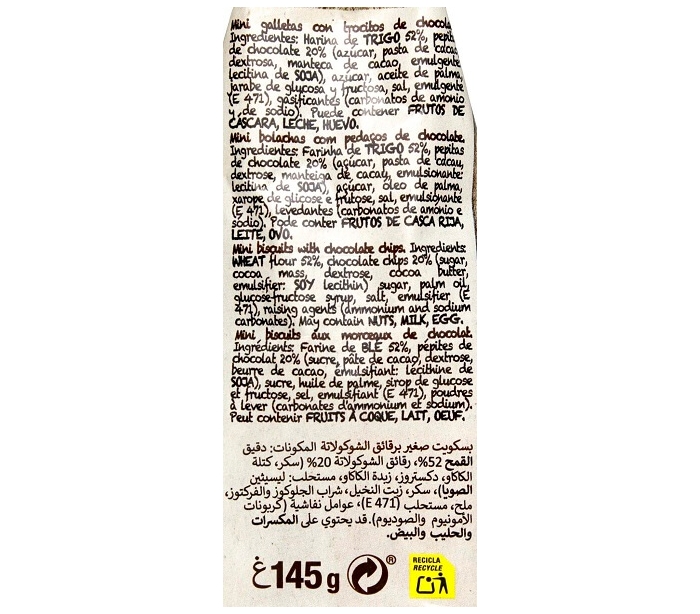 Mini galletas con trocitos de chocolate.
Ingredientes: Harina de TRIGO 52%, pepitas
de chocolate 20% (azúcar, pasta de cacao,
dextrosa, manteca de cacao, emulgente:
lecitina de SOJA), azúcar, aceite de palma,
jarabe de glucosa y fructosa, sal, emulgente
(E 471), gasificantes (carbonatos de amonio
y de sodio). Puede contener FRUTOS DE
CÁSCARA, LECHE, HUEVO.
Mini bolachas com pedaços de chocolate.
Ingredientes: Farinha de TRIGO 52%, pepitas
de chocolate 20% (açúcar, pasta de cacau,
dextrose, manteiga de cacau, emulsionante:
lecitina de SOJA), açúcar, óleo de palma,
xarope de glicose e frutose, sal, emulsionante
(E 471), levedantes (carbonatos de amónio e
sódio). Pode conter FRUTOS DE CASCA RIJA,
LEITE, OVO.
Mini biscuits with chocolate chips. Ingredients:
WHEAT flour 52%, chocolate chips 20% (sugar,
cocoa mass, dextrose, cocoa butter,
emulsifier: SOY lecithin) sugar, palm oil,
glucose-fructose syrup, salt, emulsifier (E
471), raising agents (ammonium and sodium
carbonates). May contain NUTS, MILK, EGG.
Mini biscuits aux morceaux de chocolat.
Ingrédients: Farine de BLÉ 52%, pépites de
chocolat 20% (sucre, pâte de cacao, dextrose,
beurre de cacao, émulsifiant: lécithine de
SOJA), sucre, huile de palme, sirop de glucose
et fructose, sel, emulsifiant (E 471), poudres
à lever (carbonates d'ammonium et sodium).
Peut contenir FRUITS À COQUE, LAIT, OEUF.
بسكويت صغير برقائق الشوكولاتة المكونات: دقيق
القمح 52%، رقائق الشوكولاتة 20% (سكر، كتلة
الكاكاو، دكستروز، زبدة الكاكاو، مستحلب: ليسيثين
الصويا)، سكر، زيت النخيل، شراب الجلوكوز والفركتوز،
ملح، مستحلب (E 471)، عوامل نفاشية (كربونات
الأمونيوم والصوديوم). قد يحتوي على المكسرات
والحليب والبيض.
غ 145 g ®
RECICLA
RECYCLE